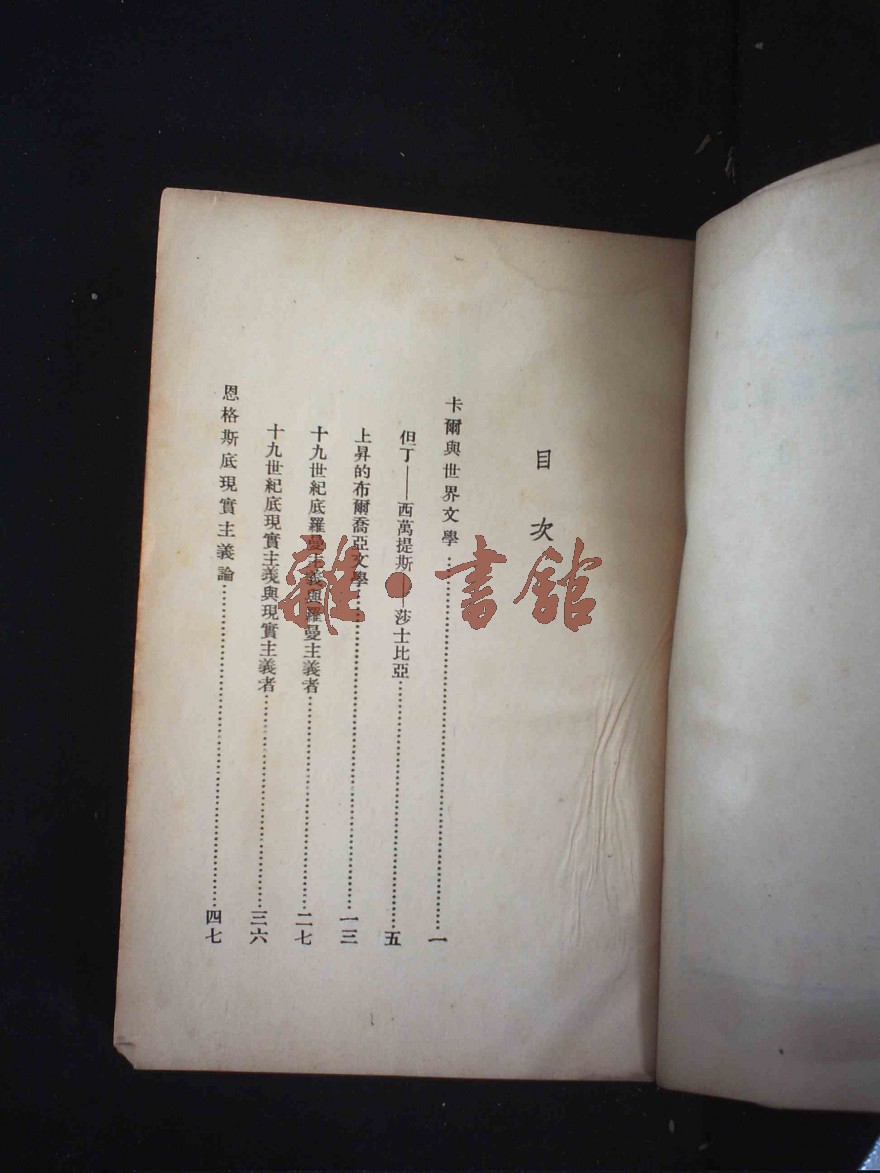 目次
卡爾與世界文學⋯⋯⋯⋯⋯⋯⋯⋯一
但丁——西萬提斯——莎士比亞⋯⋯⋯⋯⋯⋯⋯⋯五
上昇的布爾喬亞文學⋯⋯⋯⋯⋯⋯⋯⋯一三
十九世紀底羅曼主義與羅曼主義者⋯⋯⋯⋯⋯⋯⋯⋯二七
十九世紀底現實主義與現實主義者⋯⋯⋯⋯⋯⋯⋯⋯三六
恩格斯底現實主義論⋯⋯⋯⋯⋯⋯⋯⋯四七
雜·書館